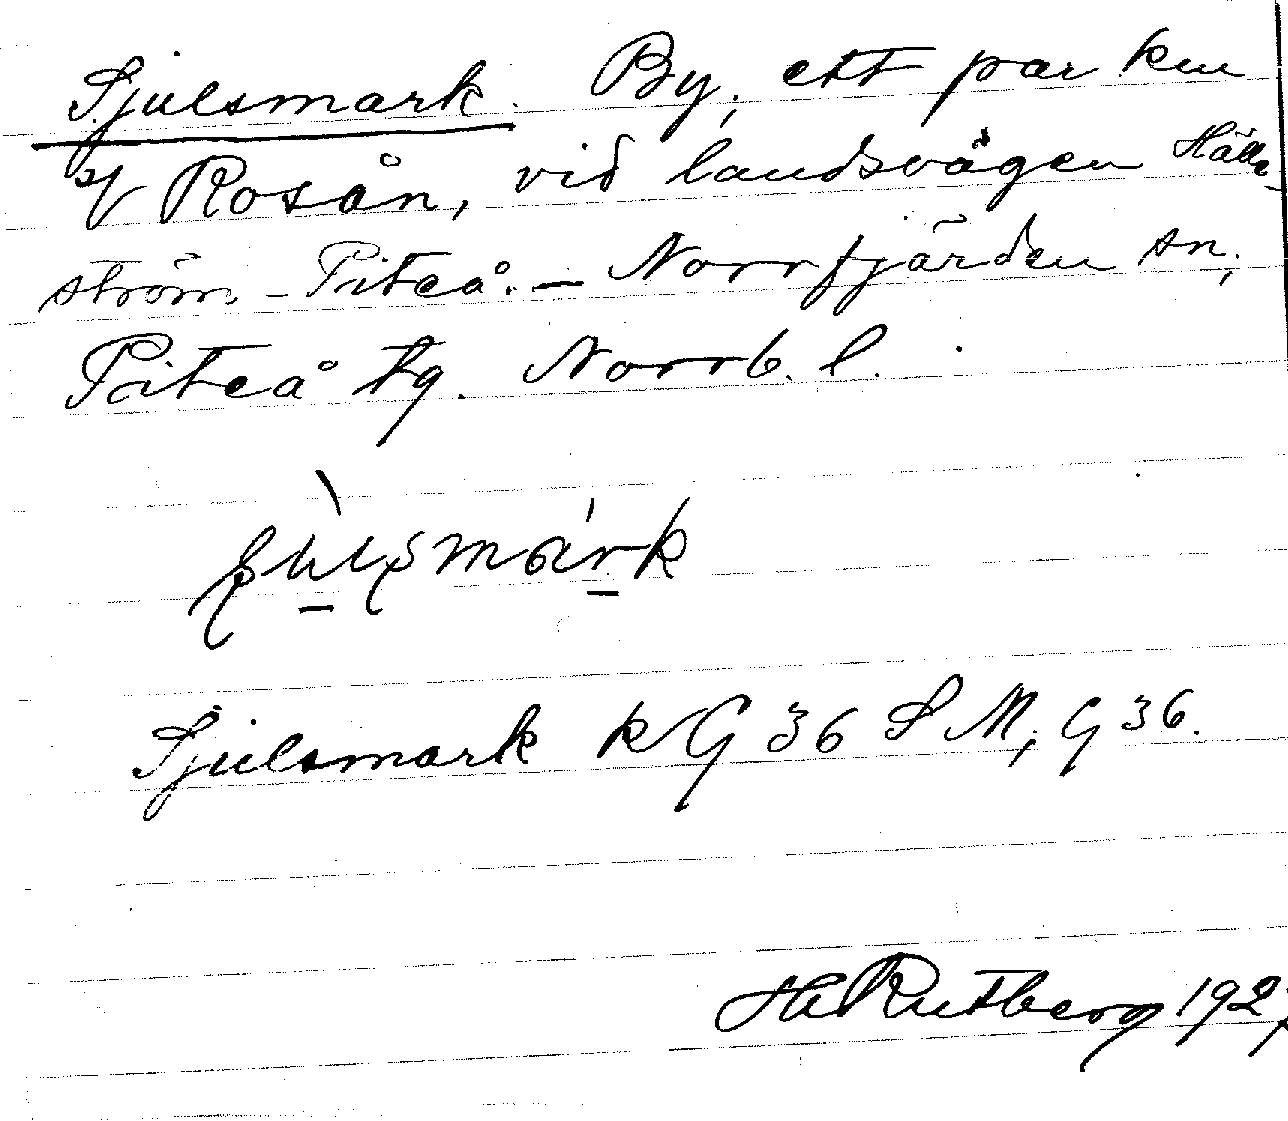 Sjulsmark. By, ett par km
sv Rosån, vid landsvägen Hällr
ström - Piteå. - Norrfjärden sn,
Piteå tg. Norrb. l.
Sjulsmark k G 36 S M, G 36.
H Rutberg 1927